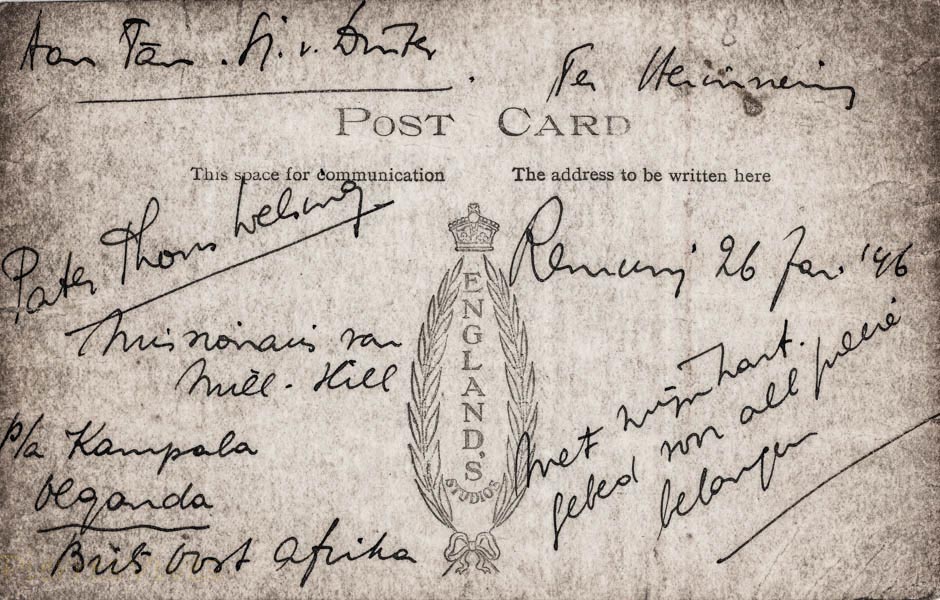 Aan Fam. H. v.
Ter Herinnering
POST CARD
This space for communication
The address to be written here
Pater Thom Welsing
Missionaris van
Mill-Hill
p/a Kampala
Oeganda
Brits Oost Afrika
26 Jan. '46
Met mijn hart.
gebed voor all
belangen
ENGLAND'S
STUDIOS